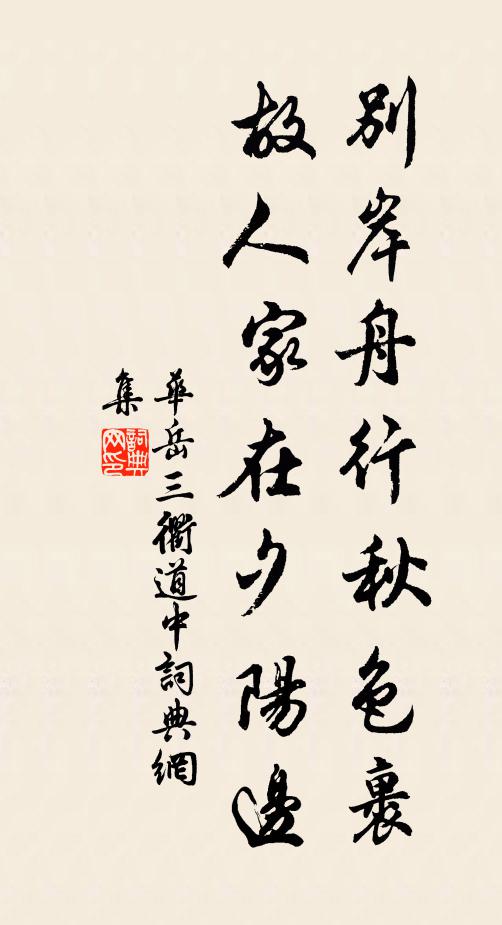 別岸舟行秋色裏
故人家在夕陽邊
華岳三衢道中詞典網
集
詞典
网印